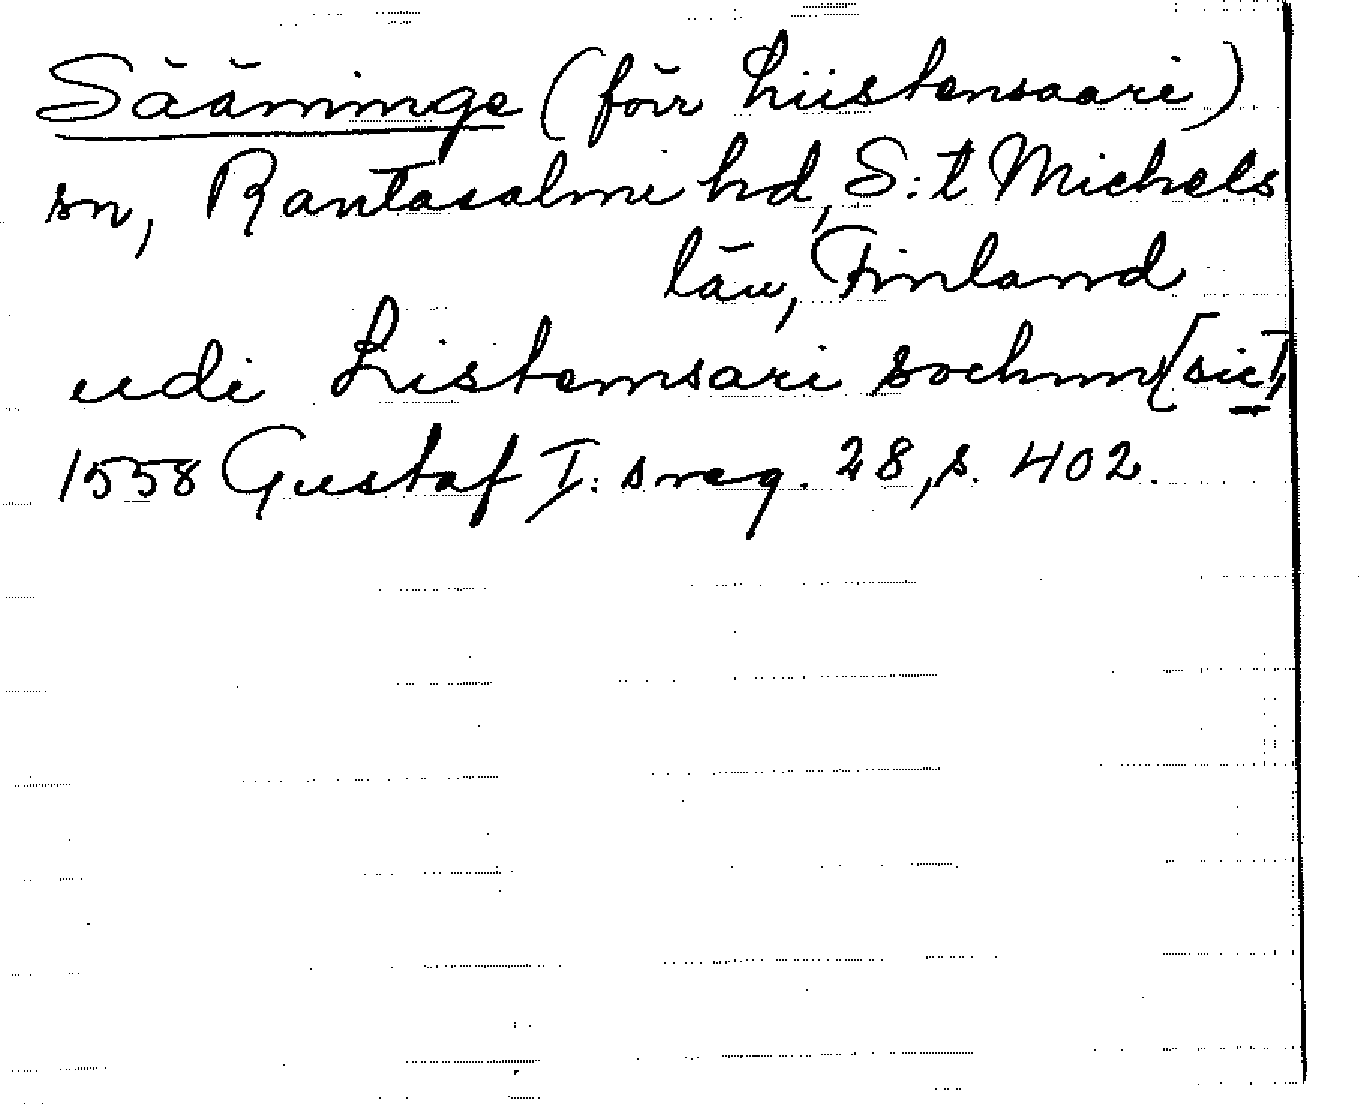 Sääminge (förr Liistensaari)
sn, Rantasalmi hd, S:t Michels
län, Finland
udi Listemsari sochnn [sic],
1558 Gustaf I:s reg. 28, s. 402.